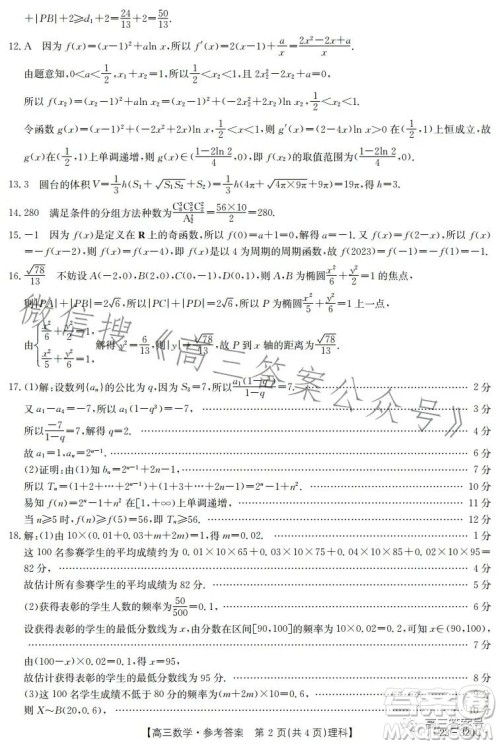 +|PB|+2⩾d₁+2=24/13+2=50/13.
12. A 因为 f(x)=(x-1)²+aln x,所以 f′(x)=2(x-1)+a/x=(2x²-2x+a)/x.
由题意知,0<a<1/2,x₁+x₂=1,所以1/2<x₂<1,且 2x₂²-2x₂+a=0,
所以 f(x₂)=(x₂-1)²+aln x₂=(x₂-1)²+(-2x₂²+2x₂)ln x₂,1/2<x₂<1.
令函数 g(x)=(x-1)²+(-2x²+2x)ln x,1/2<x<1,则 g′(x)=(2-4x)ln x>0 在(1/2,1)上恒成立,故
g(x)在(1/2,1)上单调递增,所以 g(x)∈((1-2ln 2)/4,0),即 f(x₂)的取值范围为((1-2ln 2)/4,0).
13. 3 圆台的体积 V=1/3h(S₁+√(S₁S₂)+S₂)=1/3h(4π+√(4π×9π)+9π)=19π,得 h=3.
14. 280 满足条件的分组方法种数为C₈³C₅³C₂²/A₂²=56×10/2=280.
15. -1 因为 f(x)是定义在 R 上的奇函数,所以 f(0)=a+1=0,解得 a=-1. 又 f(x)=f(2-x),所以 f(x)
=-f(x-2),则 f(x)=f(x-4),即 f(x)是以 4 为周期的周期函数,故 f(2023)=f(-1)=-f(1)=-1.
16. √78/13 不妨设 A(-2,0),B(2,0),C(-1,0),D(1,0),则 A,B 为椭圆x²/6+y²/2=1 的焦点,
则|PA|+|PB|=2√6,所以|PC|+|PD|=2√6,所以 P 为椭圆x²/6+y²/5=1 上一点,
由{x²/6+y²/2=1, x²/5+y²/6=1 解得 y²=6/13,则|y|=√78/13,故 P 到 x 轴的距离为√78/13.
17. (1)解:设数列{aₙ}的公比为 q,因为 S₃=7,所以a₁(1-q³)/(1-q)=7, 2 分
又 a₁-a₄=-7,所以 a₁(1-q³)=-7, 3 分
所以-7/(1-q)=7,解得 q=2. 4 分
故 a₁=1,aₙ=2ⁿ⁻¹. 6 分
(2)证明:由(1)知 bₙ=2ⁿ⁻¹+2n-1, 7 分
所以 Tₙ=(1+2+…+2ⁿ⁻¹)+(1+3+…+2n-1)=2ⁿ-1+n². 10 分
易知 f(n)=2ⁿ-1+n² 在[1,+∞)上单调递增, 11 分
当 n⩾5 时,f(n)⩾f(5)=56,即 Tₙ⩾56. 12 分
18. 解:(1)由 10×(0.01+0.03+m+2m)=1,得 m=0.02. 1 分
这 100 名参赛学生的平均成绩约为 0.01×10×65+0.03×10×75+0.04×10×85+0.02×10×95=
82 分, 4 分
故估计所有参赛学生的平均成绩为 82 分. 5 分
(2)获得表彰的学生人数的频率为50/500=0.1, 6 分
设获得表彰的学生的最低分数为 x,由分数在区间[90,100]的频率为 10×0.02=0.2,可知 x∈(90,100),
7 分
由(100-x)×0.02=0.1,得 x=95. 8 分
故估计获得表彰的学生的最低分数为 95 分. 8 分
(3)这 100 名学生成绩不低于 80 分的频率为(m+2m)×10=0.6, 9 分
则 X~B(20,0.6), 10 分
【高三数学·参考答案 第 2 页(共 4 页)理科】
微信搜《高三答案公众号》
高三答案号